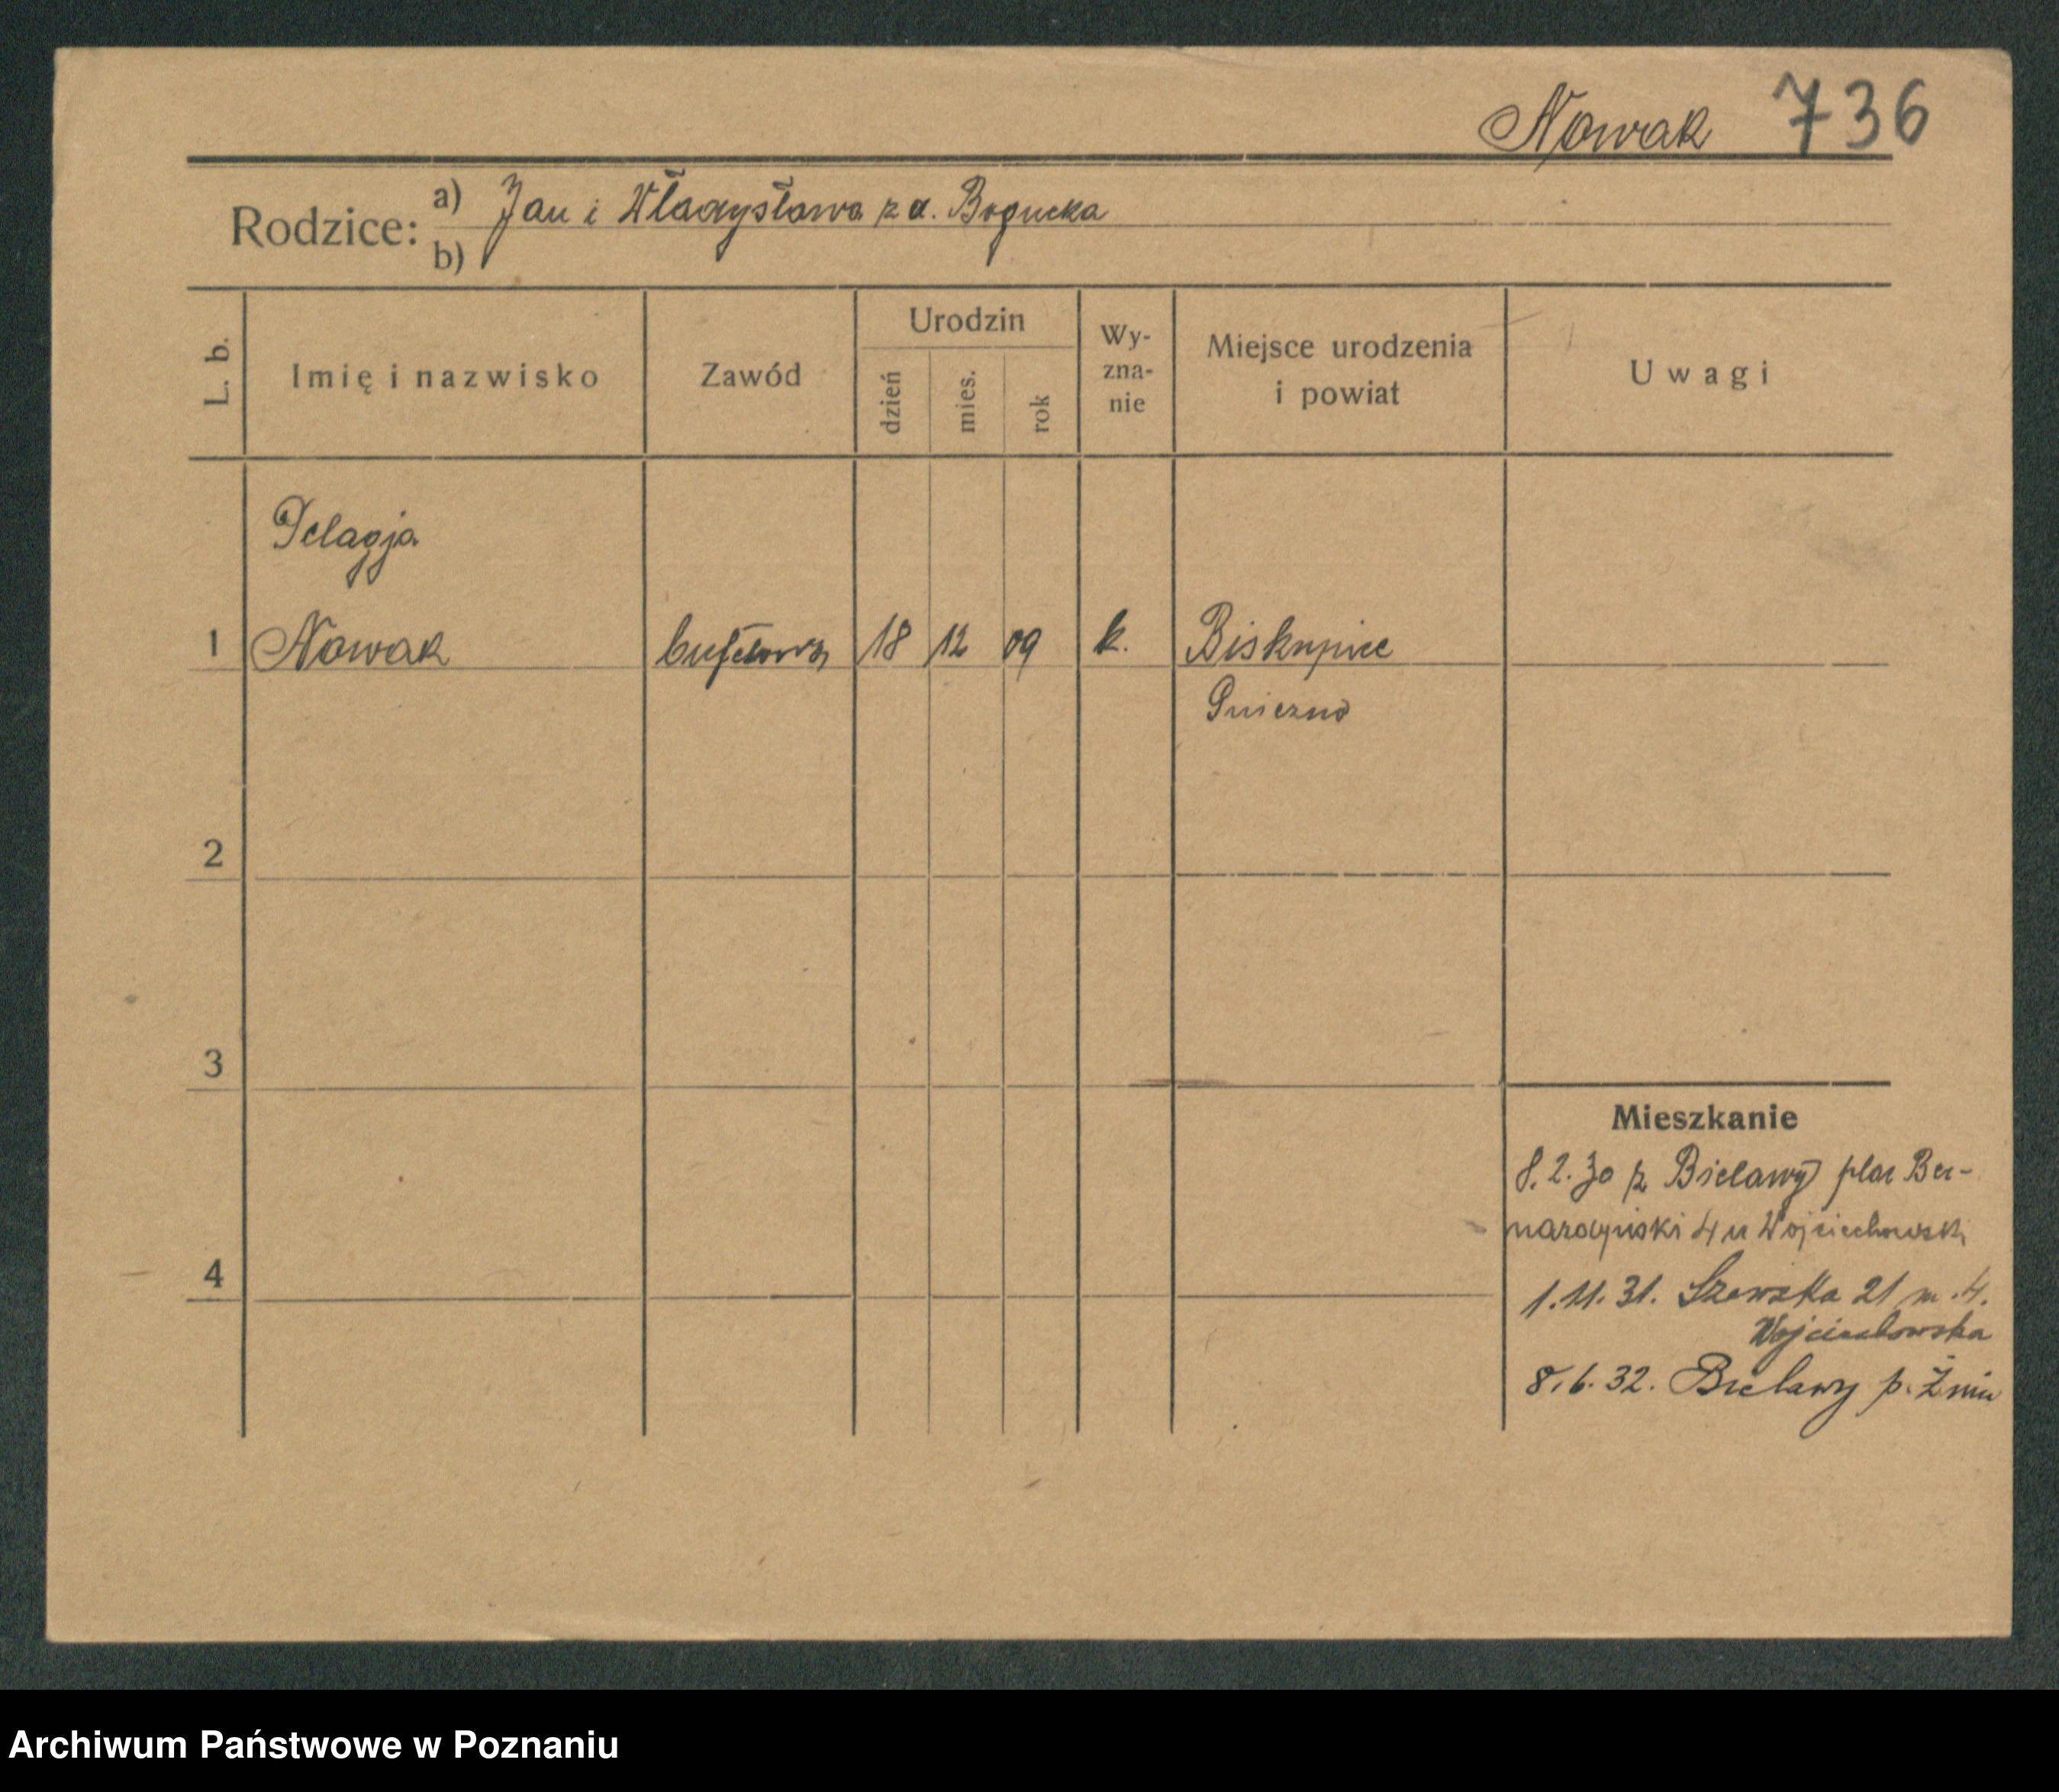 Nowak 736
Rodzice: a) Jan i Władysława z d. Bogucka
b)
L. b.
Imię i nazwisko
Zawód
Urodzin
dzień
mies.
rok
Wy-
zna-
nie
Miejsce urodzenia
i powiat
Uwagi
Pelagja
1 Nowak bufetowa 18 12 09 k. Biskupice
Gniezno
2
3
Mieszkanie
8.2.30 z Bielawy plac Ber-
nardyński 4 u Wojciechowski
4
1.11.31. Szewska 21 m. 4.
Wojciechowska
8.6.32. Bielawy p. Żnin
Archiwum Państwowe w Poznaniu